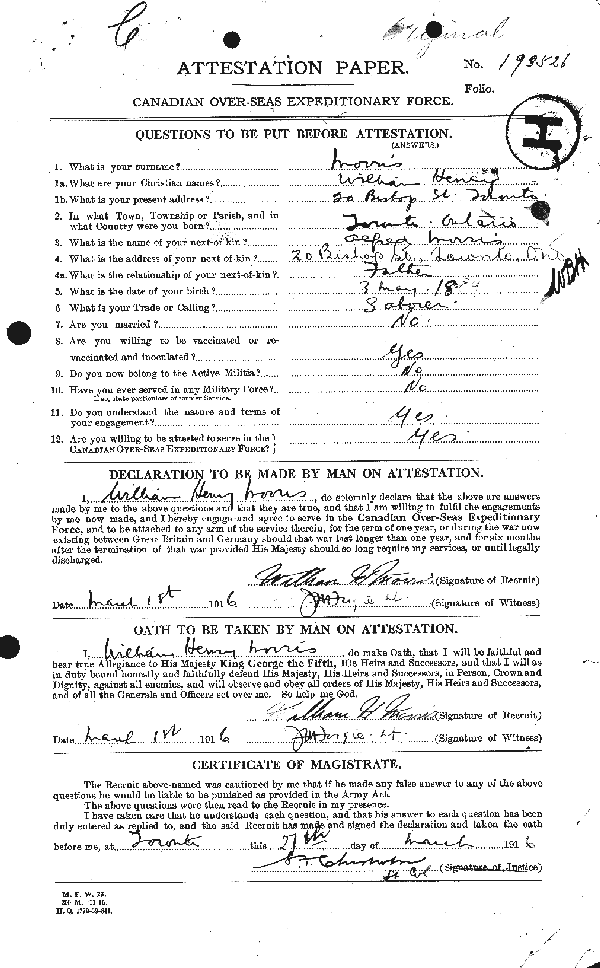 C
Original
ATTESTATION PAPER.
No. 193526
Folio.
CANADIAN OVER-SEAS EXPEDITIONARY FORCE.
H
QUESTIONS TO BE PUT BEFORE ATTESTATION.
(ANSWERS.)
1. What is your surname? Morris
1a. What are your Christian names? William Henry
1b. What is your present address? 20 Bishop St. Toronto
2. In what Town, Township or Parish, and in
what Country were you born? Toronto Ontario
3. What is the name of your next-of-kin? Alfred Morris
4. What is the address of your next-of-kin? 20 Bishop St. Toronto Ont
4a. What is the relationship of your next-of-kin? Father
5. What is the date of your birth? 3 May
6. What is your Trade or Calling? Laborer
7. Are you married? No.
8. Are you willing to be vaccinated or re-
vaccinated and inoculated? Yes
9. Do you now belong to the Active Militia? No
10. Have you ever served in any Military Force? No
If so, state particulars of former Service.
11. Do you understand the nature and terms of
your engagement? Yes
12. Are you willing to be attested to serve in the
CANADIAN OVER-SEAS EXPEDITIONARY FORCE? Yes
DECLARATION TO BE MADE BY MAN ON ATTESTATION.
I, William Henry Morris, do solemnly declare that the above are answers
made by me to the above questions and that they are true, and that I am willing to fulfil the engagements
by me now made, and I hereby engage and agree to serve in the Canadian Over-Seas Expeditionary
Force, and to be attached to any arm of the service therein, for the term of one year, or during the war now
existing between Great Britain and Germany should that war last longer than one year, and for six months
after the termination of that war provided His Majesty should so long require my services, or until legally
discharged.
William H Morris (Signature of Recruit)
Date March 1st 1916 (Signature of Witness)
OATH TO BE TAKEN BY MAN ON ATTESTATION.
I, William Henry Morris, do make Oath, that I will be faithful and
bear true Allegiance to His Majesty King George the Fifth, His Heirs and Successors, and that I will as
in duty bound honestly and faithfully defend His Majesty, His Heirs and Successors, in Person, Crown and
Dignity, against all enemies, and will observe and obey all orders of His Majesty, His Heirs and Successors,
and of all the Generals and Officers set over me. So help me God.
William H Morris (Signature of Recruit)
Date March 1st 1916 (Signature of Witness)
CERTIFICATE OF MAGISTRATE.
The Recruit above-named was cautioned by me that if he made any false answer to any of the above
questions he would be liable to be punished as provided in the Army Act.
The above questions were then read to the Recruit in my presence.
I have taken care that he understands each question, and that his answer to each question has been
duly entered as replied to, and the said Recruit has made and signed the declaration and taken the oath
before me, at Toronto this 27th day of March 1916
Lt Col (Signature of Justice)
M. F. W. 23.